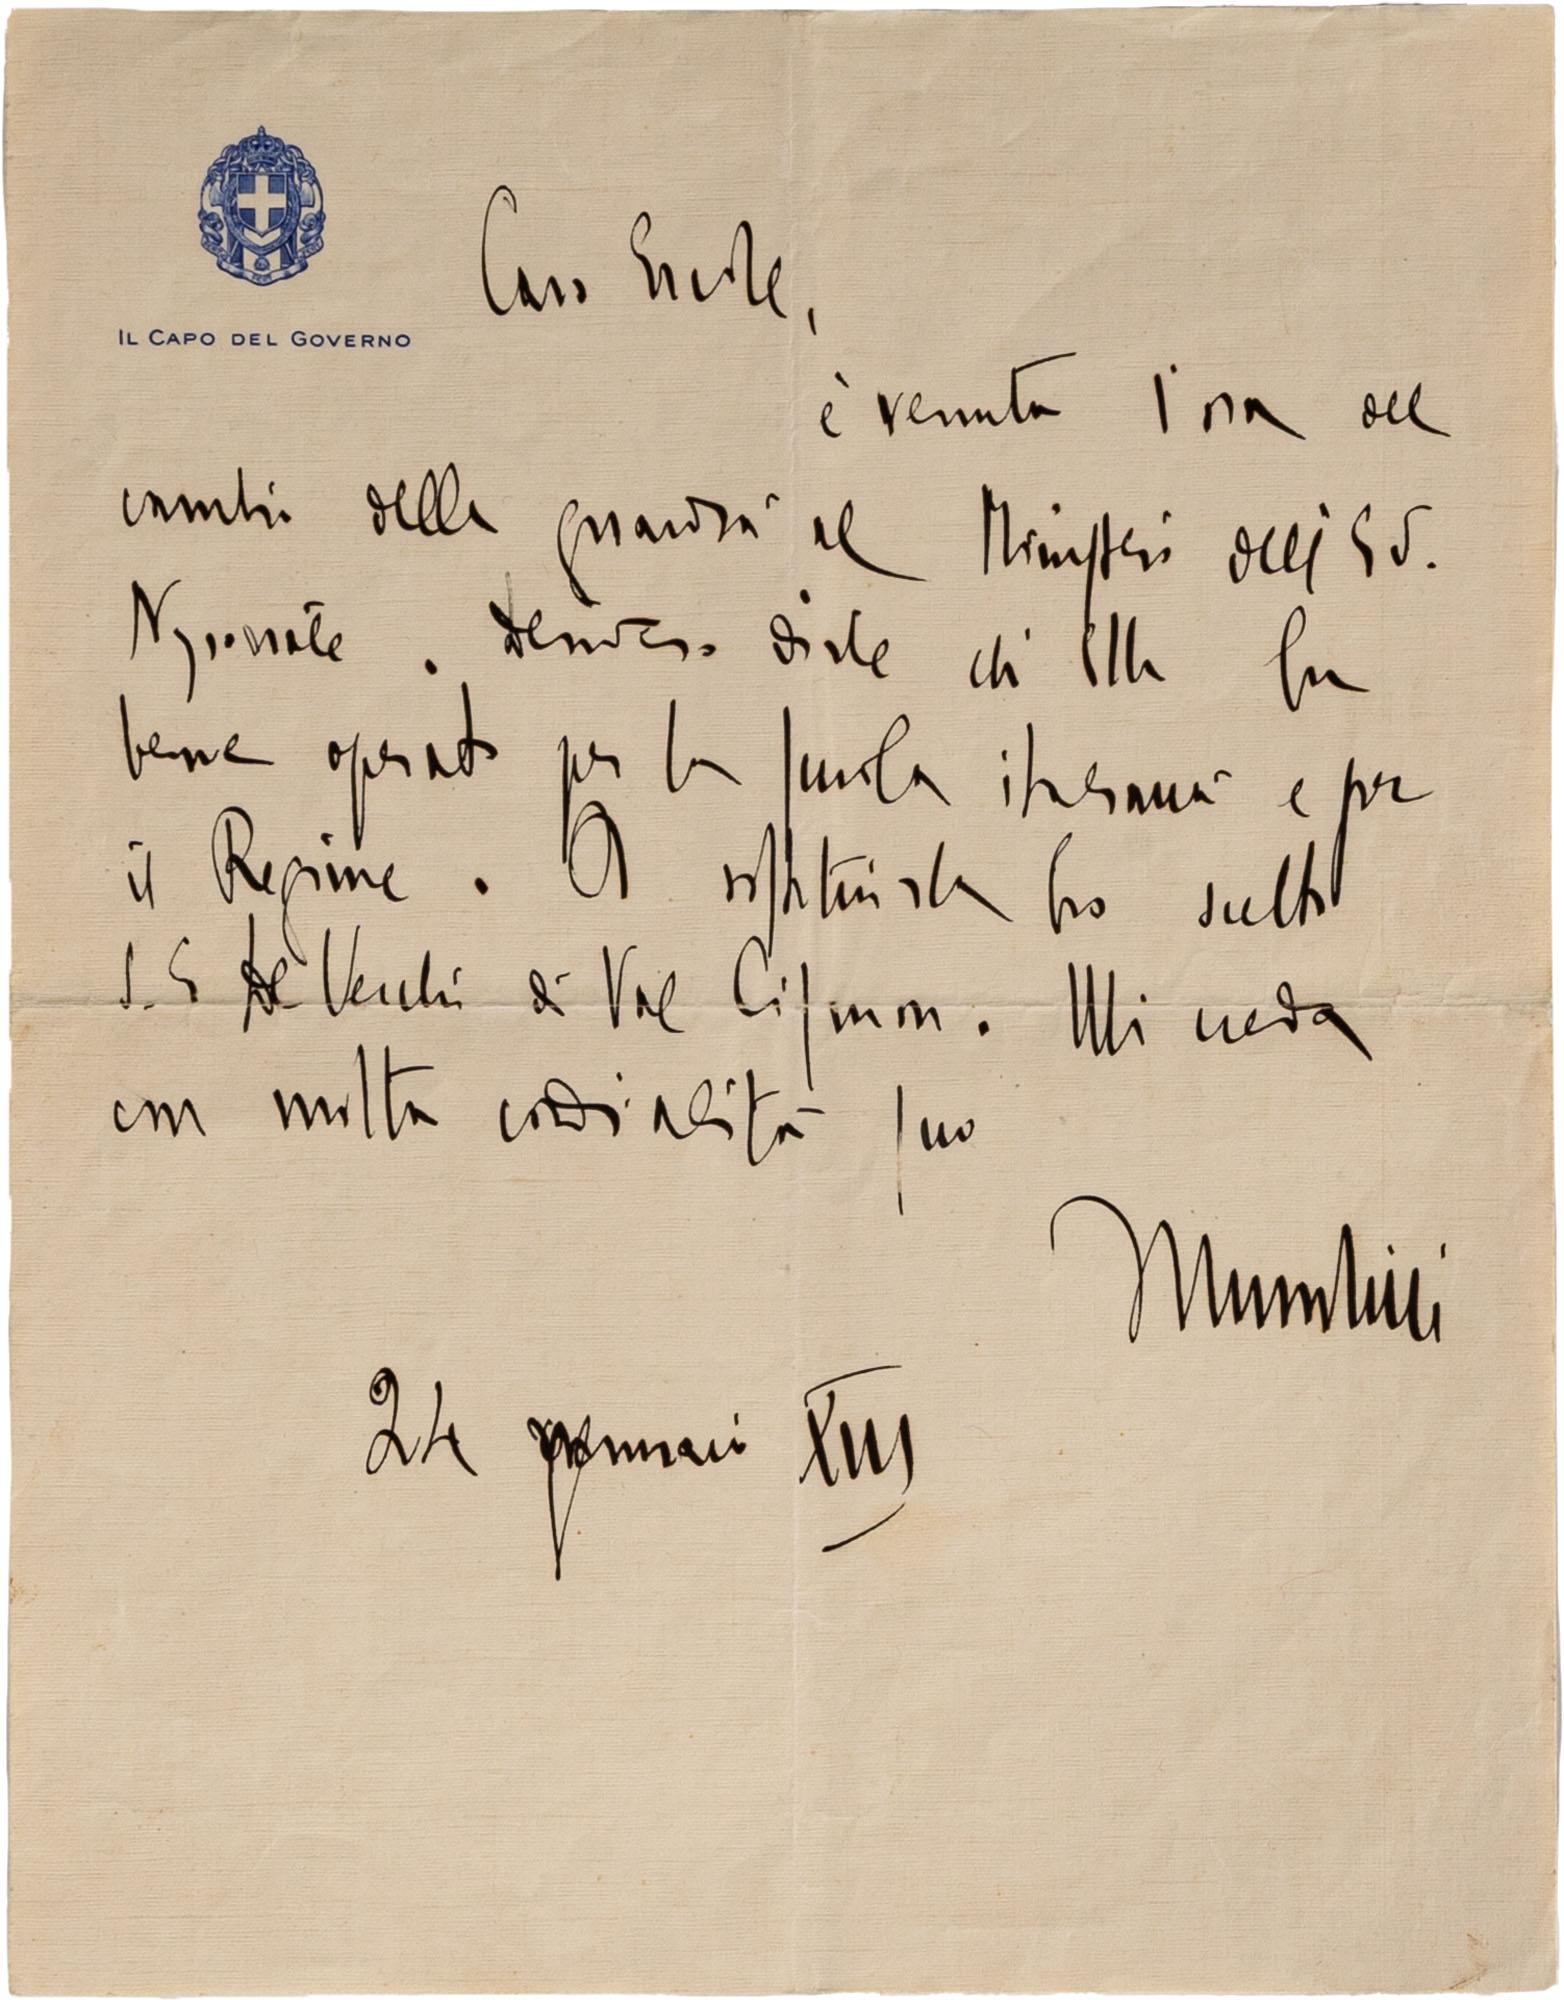 IL CAPO DEL GOVERNO
Caro Ercole,
è venuta l'ora del
cambio della guardia al Ministero dell'Ed.
Nazionale. Desidero dirle che Ella ha
bene operato per la scuola italiana e per
il Regime. A sostituirla ho scelto
S.E. De Vecchi di Val Cismon. Mi creda
con molta cordialità suo
Mussolini
24 gennaio XIII